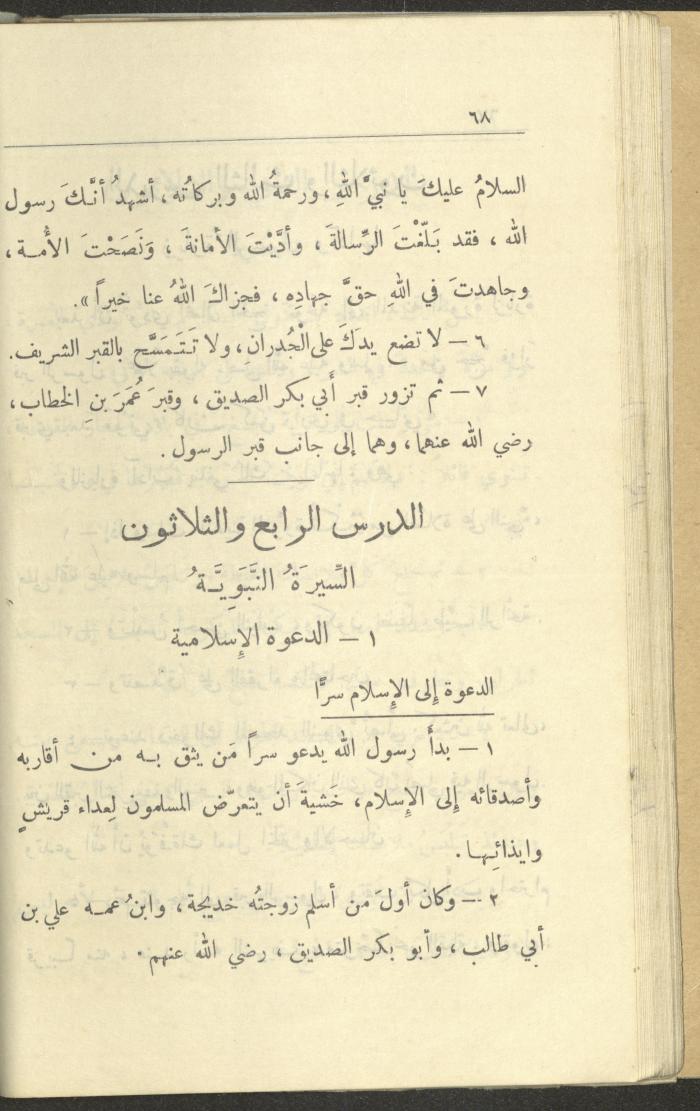 ٦٨
السلامُ عليكَ يا نبيَّ اللهِ، ورحمةُ الله وبركاتُه، أشهدُ أنَّكَ رسول
الله، فقد بَلّغْتَ الرِّسالةَ، وأدَّيْتَ الأمانةَ، وَنَصَحْتَ الأُمة،
وجاهدتَ في اللهِ حقَّ جهادِه، فجزاكَ اللهُ عنا خيراً».
٦ – لا تضع يدَكَ على الْجُدرانِ، ولا تَتَمَسَّح بالقبر الشريف.
٧ – ثم تزور قبر أَبي بكر الصديق، وقبرَ عُمَرَ بنِ الخطاب،
رضي الله عنهما، وهما إلى جانب قبر الرسول.
الدرس الرابع والثلاثون
السِّيرَةُ النَّبَوِيَّةُ
١ – الدعوة الإِسلامية
الدعوة إِلى الإِسلام سرًّا
١ – بدأَ رسول الله يدعو سراً مَن يثق به من أقاربه
وأصدقائه إِلى الإِسلام، خَشيةَ أن يتعرّض المسلمون لِعداء قريشٍ
وايذائِها.
٢ – وكانَ أولَ من أسلم زوجتُه خديجة، وابنُ عمه علي بن
أبي طالب، وأبو بكر الصديق، رضي الله عنهم.